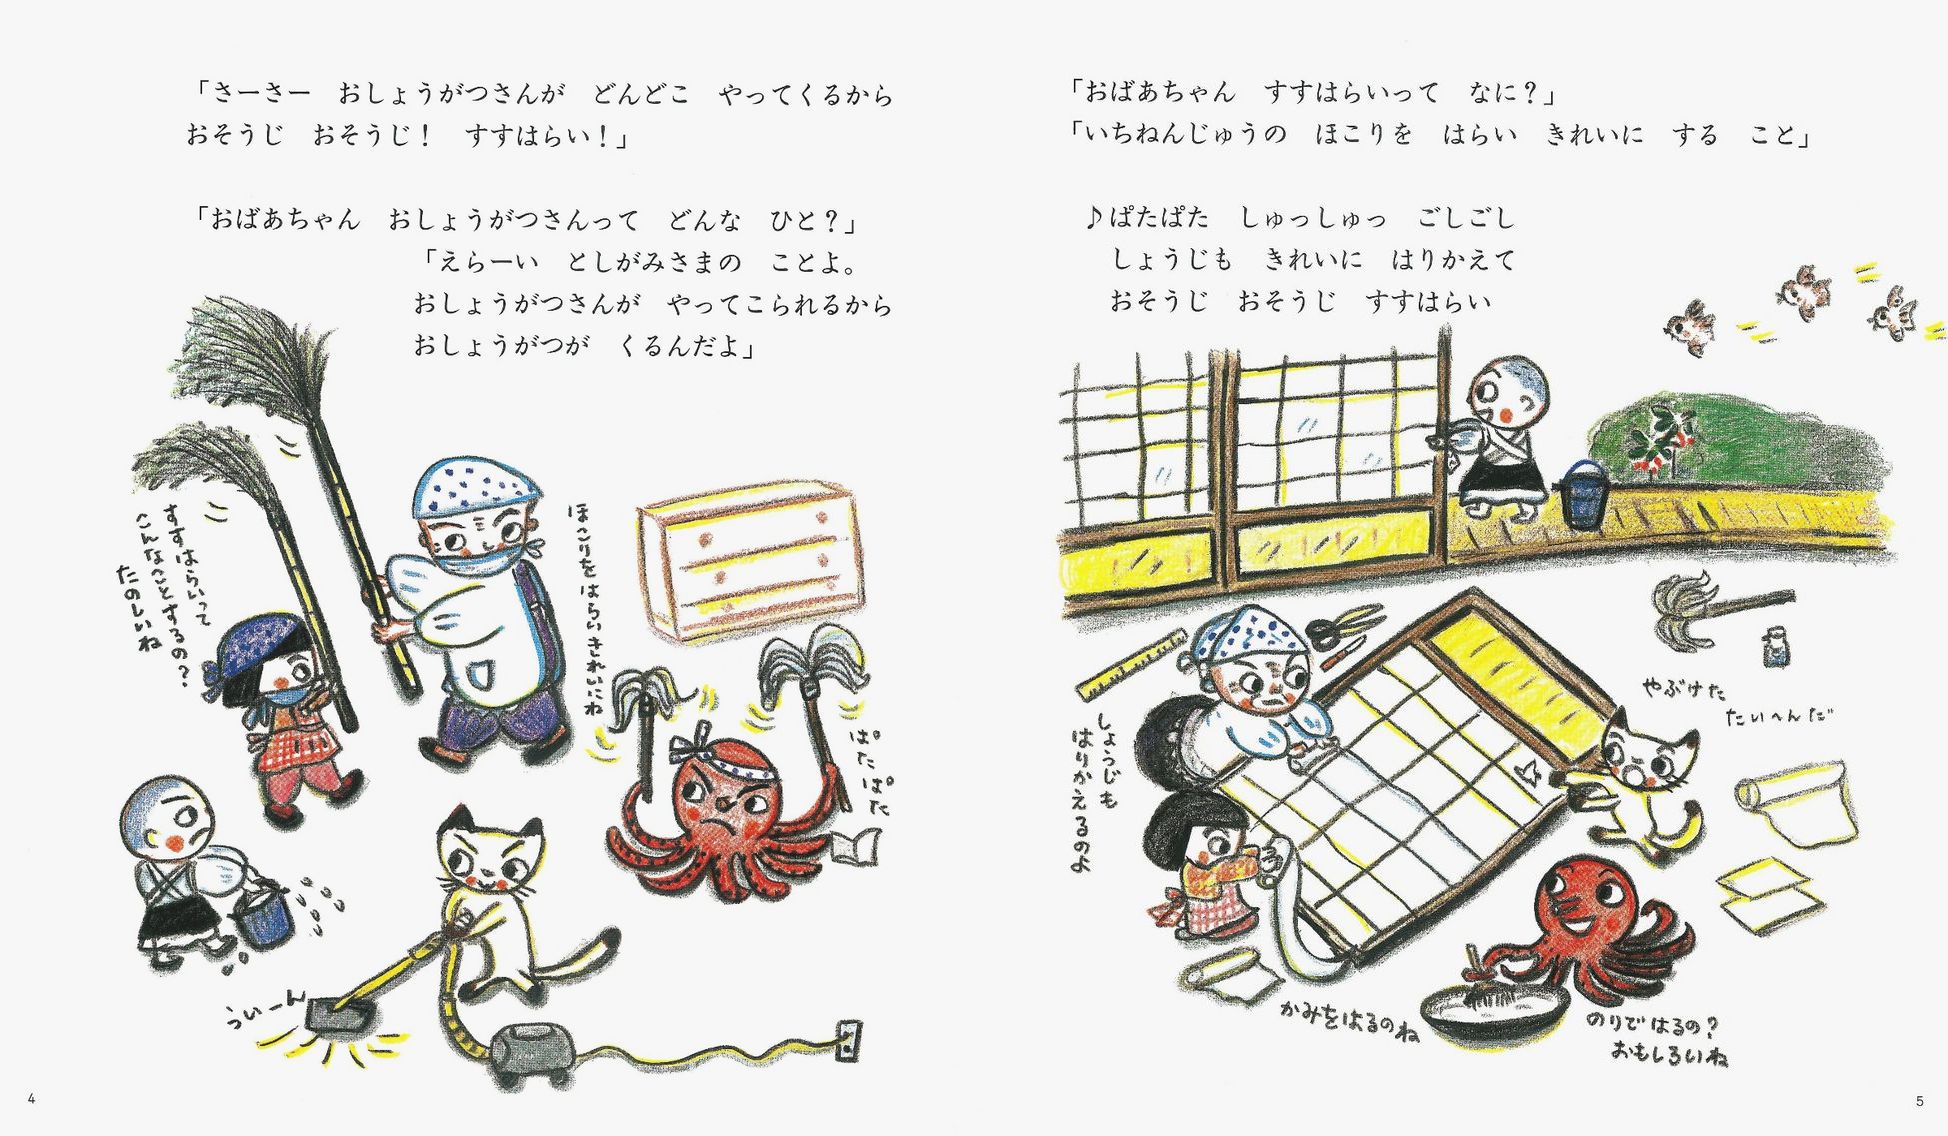 「さーさー　おしょうがつさんが　どんどこ　やってくるから
おそうじ　おそうじ！　すすはらい！」
「おばあちゃん　おしょうがつさんって　どんな　ひと？」
「えらーい　としがみさまの　ことよ。
おしょうがつさんが　やってこられるから
おしょうがつが　くるんだよ」
すすはらいって
こんなことするの？
たのしいね
ほこりをはらいきれいにね
ぱたぱた
うぃーん
4
「おばあちゃん　すすはらいって　なに？」
「いちねんじゅうの　ほこりを　はらい　きれいに　する　こと」
♪ぱたぱた　しゅっしゅっ　ごしごし
しょうじも　きれいに　はりかえて
おそうじ　おそうじ　すすはらい
しょうじも
はりかえるのよ
やぶけた
たいへんだ
かみをはるのね
のりではるの？
おもしろいね
5